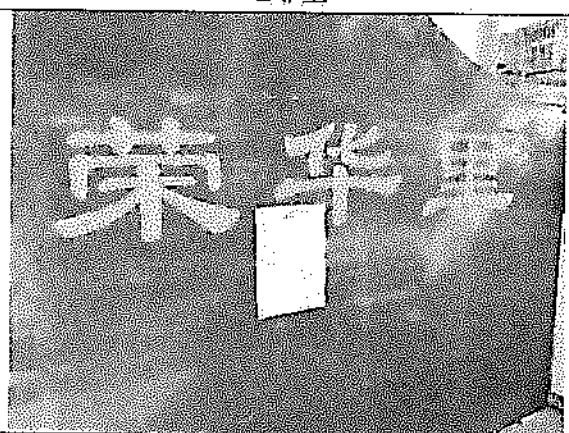 荣华里